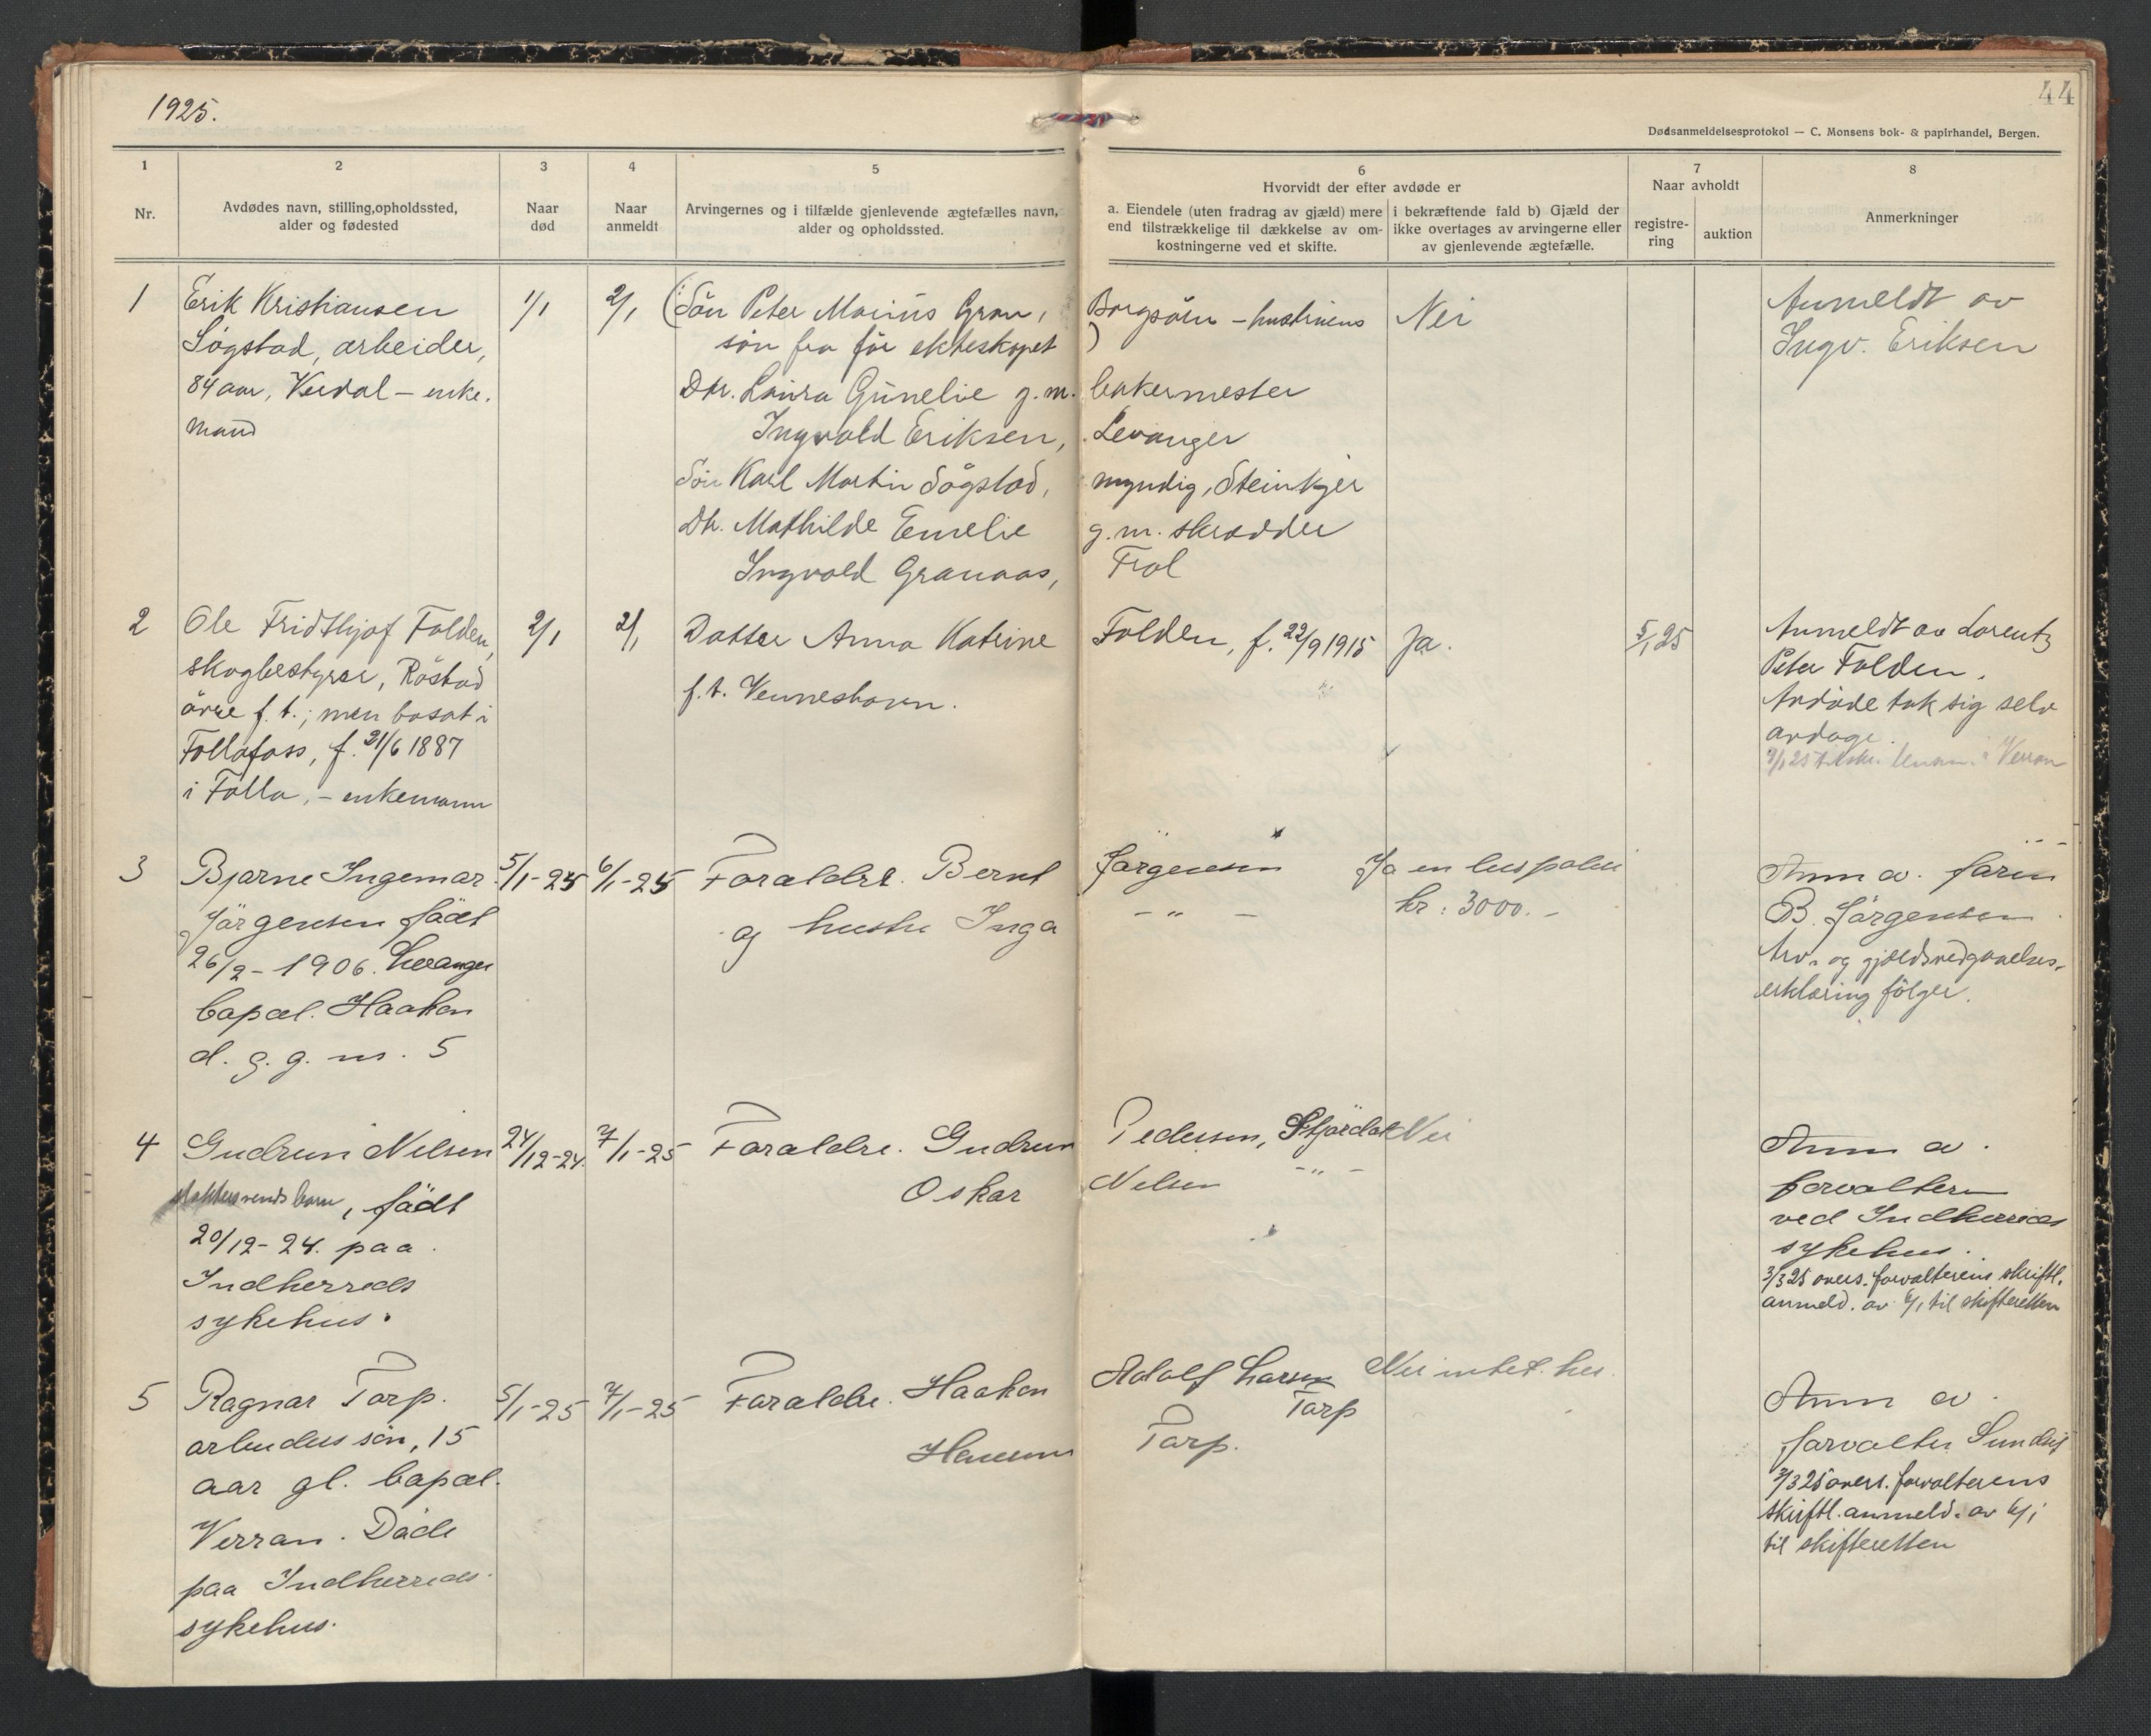 1925.
44
Dødsanmeldelsesprotokol — C. Monsens bok- & papirhandel, Bergen.
1
2
3
4
5
6
7
8
Nr.
Avdødes navn, stilling, opholdssted,
alder og fødested
Naar
død
Naar
anmeldt
Arvingernes og i tilfælde gjenlevende ægtefælles navn,
alder og opholdssted.
Hvorvidt der efter avdøde er
a. Eiendele (uten fradrag av gjæld) mere
end tilstrækkelige til dækkelse av om-
kostningerne ved et skifte.
i bekræftende fald b) Gjæld der
ikke overtages av arvingerne eller
av gjenlevende ægtefælle.
Naar avholdt
registre-
ring
auktion
Anmerkninger
1
Erik Kristiansen
Søgstad, arbeider,
84 aar, Verdal – enke.
mand
1/1
2/1
(: Søn Peter Marius Gran, Borgsåsen – hustruens
søn fra før ekteskapet )
Dtr. Laura Gunelie g. m. bakermester
Ingvald Eriksen, Levanger
Søn Karl Martin Søgstad, myndig, Steinkjer
Dtr. Mathilde Emelie g. m. skrædder
Ingvald Granaas, Frol
Nei
Anmeldt av
Ingv. Eriksen
2
Ole Fridthjof Folden,
skogbestyrer, Røstad
øvre f. t.; men bosat i
Follafoss, f. 21/6 1887
i Folla, – enkemann
2/1
2/1
Datter Anna Katrine Folden, f. 22/9 1915
f. t. Venneshavn.
Ja.
5/1 25
Anmeldt av Lorentz
Peter Folden.
Avdøde tok sig selv
avdage.
9/1 25 tilskr. lensm. i Verran
3
Bjarne Ingemar
Jørgensen født
26/2 - 1906. Levanger
bopæl. Haakon
d. g. g. nr. 5
5/1 - 25
6/1 - 25
Foraldre. Bernt Jørgensen
og hustru Inga – " –
Ja en livspolice
kr: 3000. –
Anm av. faren
B. Jørgensen
Arv- og gjeldsvedgaaelses-
erklæring følger.
4
Gudrun Nilsen
barn, født
20/12 - 24. paa
Indherreds
sykehus.
24/12 - 24.
7/1 - 25
Foraldre. Gudrun Pedersen, Stjørdal
Oskar Nilsen – " –
Nei
Anm av
forvalteren
ved Indherreds
sykehus.
3/3 25 overs. forvalterens skriftl.
anmeld. av 6/1 til skifteretten
5
Ragnar Torp.
arbeiders søn, 15
aar gl. bopæl.
Verran. Døde
paa Indherreds
sykehus.
5/1 - 25
7/1 - 25
Foraldre. Haakon Adolf Larsen
Torp
Torp.
Nei intet.
Anm av
forvalter
3/3 25 overs. forvalterens
skriftl. anmeld. av 6/1
til skifteretten